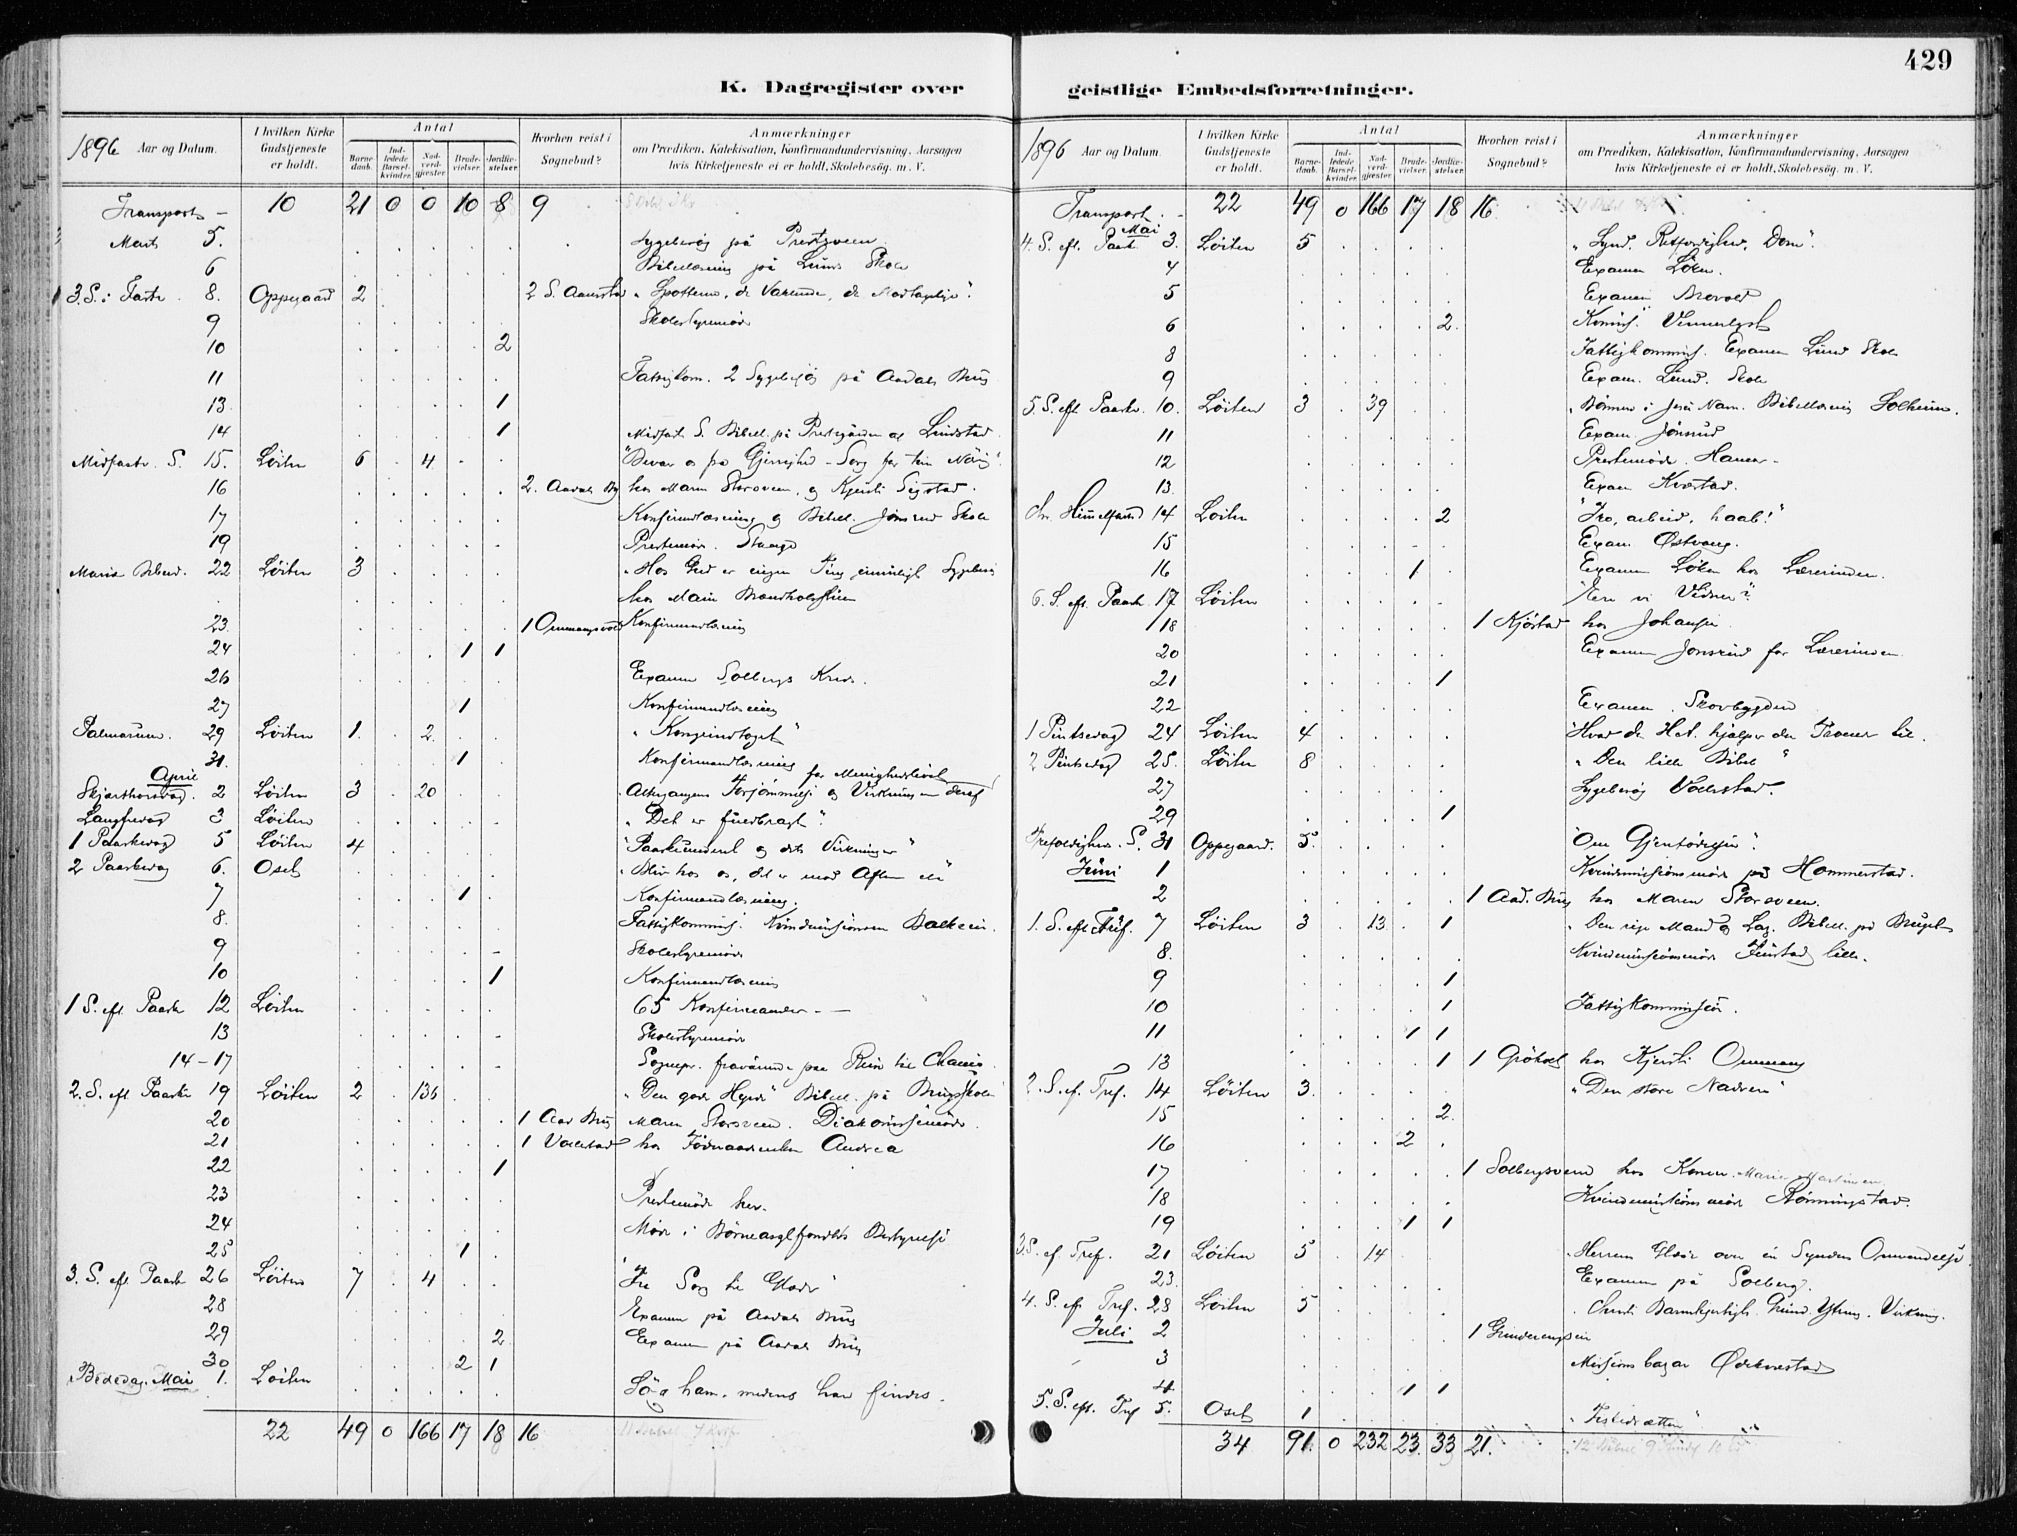 K. Dagregister over
1896 Aar og Datum.
I hvilken Kirke Gudstjeneste er holdt.
Antal
Barne-daab.
Ind-ledede Barsel-kvinder.
Nad-verd-gjæster.
Brude-vielser.
Jordfæ-stelser.
Hvorhen reist i Sognebud?
Anmærkninger
om Prædiken, Katekisation, Konfirmandundervisning, Aarsagen
hvis Kirketjeneste ei er holdt, Skolebesög. m. V.
Transport - 10 21 0 0 10 8 9
Marts 5. Sygebesøg på Prestsveen
6 Bibellæsning på Lunds Skole
3. S. i Faste 8. Oppegaard 2 2 S. Aamstad „Spotterne, de Vakende, de Modtagelige".
9 Skolestyremøde
10 2
11 Fattigkom. 2 Sygebesøg på Aadals Brug
13 1
14 1 Midfaste S. Bibell. på Prestegården og Lindstad
Midfaste S. 15. Løiten 6 4 "Bevar os fra Gjerrighed - Sorg for tim Næring".
16 2. Aadals Bg hos Maren Storsveen, og Kjersti Sigstad.
17 Konfirmandlæsning og Bibell. Jønsrud Skole
19 Prestemøde. Stange
Maria Bebud. 22 Løiten 3 „Hos Gud er ingen Ting umuligt Sygebesøg
hos Marie Brændholsstuen
23. 1 Ommangsvold Konfirmandlæsning
24 1 1
26 Examen Solbergs Kreds.
27 1 Konfirmandlæsning
Palmarum. 29 Løiten 1 2 „Kongeindtoget"
31. 1 Konfirmandlæsning for Menigheds
April
Skjærthorsdag. 2 Løiten 3 20 Altergangens Forsømmelse og Virkningen deraf
Langfredag 3 Løiten „Det er fuldbragt".
1 Paaskedag 5 Løiten 4 "Paaskeunderet og dets Virkninger"
2 Paaskedag 6. Oset „Bliv hos os, det er mod Aften"
7 1 Konfirmandlæsning.
8. Fattigkommis. Kvindemissionen Bakken.
9 Skolestyremøde
10 1 Konfirmandlæsning
1 S. eft. Paaske 12 Løiten 65 Konfirmander
13 Skolestyremøde
14-17 Sognepr. fraværende paa Reise til
2. S. eft. Paaske 19 Løiten 2 136 „Den gode Hyrde" Bibell. på Brugsskolen
20 1 Aad Brug Maren Storsveen. Diakonissemøde.
21 1 Voldstad hos Andrea
22 1
23 Prestemøde her.
24 Møde i Børneasylfondets Bestyrelse
25 1
3. S. eft. Paaske 26 Løiten 7 4 "Fra Sorg til Glæde"
28 Examen på Aadals Brug
29 2 Examen på Aadals Brug
30 2 1
Bededag. Mai 1. Løiten Søg ham, medens han findes.
22 49 0 166 17 18 16
geistlige Embedsforretninger.
429
1896 Aar og Datum.
I hvilken Kirke Gudstjeneste er holdt.
Antal
Barne-daab.
Ind-ledede Barsel-kvinder.
Nad-verd-gjæster.
Brude-vielser.
Jordfæ-stelser.
Hvorhen reist i Sognebud?
Anmærkninger
om Prædiken, Katekisation, Konfirmandundervisning, Aarsagen
hvis Kirketjeneste ei er holdt, Skolebesög. m. V.
Transport. - 22 49 0 166 17 18 16
Mai
4. S. eft. Paask. 3. Løiten 5 „Synd, Retfærdighed, Dom".
4 Examen Løken.
5 Examen Brovold
6 2. Komis. Vennerlyst
8 Fattigkommis. Examen Lund Skole
9 Exam. Lund. Skole
5. S. eft. Paaske. 10. Løiten 3 39 „Bønnen i Jesu Navn. Bibellæsning Solheim.
11 Exam. Jønsrud
12 Prestemøde. Hamar.
13. Exam Kværstad.
Chr. Himmelfartsd 14 Løiten 2 "Tro, arbeid, haab!"
15 Exam. Østvang.
16 1 Examen Løken hos Lærerinden.
6. S. eft. Paask. 17 Løiten "Ere vi Vidner"?
18 1 Kjøstad hos Johansen
20 Examen Jønsrud for Lærerinden
21 1
22 Examen. Skovbygden
1 Pintsedag 24 Løiten 4 "Hvad de Hel. hjælper den Troende til.
2 Pintsedag 25. Løiten 8 „Den lille Bibel"
27 Sygebesøg Voldstad.
29 1
Trefoldigheds. S. 31 Oppegaard. 5. "Om Gjenfødelsen".
Juni 1 Kvindemissionsmøde på Hommerstad.
2 1 Aad. Brug hos Maren Storsveen.
1. S. eft Tref. 7 Løiten 3 13 1 „Den rige Mand og Laz. Bibell. på Bruget
8. Kvindemissionsmøde Finstad lille.
9 1
10 1 Fattigkommission.
11 1 1
13 1 1 Grøtvol hos Kjersti Ommang
2. S. ef. Tref. 14 Løiten 3. „Den store Nadver"
15 2.
16 2
17 1 Solbergsveen hos Konen Marie Martinsen
18 Kvindemissionsmøde Rømmingstad.
19 1 1
3. S. ef. Tref. 21 Løiten 5 14 „Herrens Glæde over en Synders Omvendelse
23. Examen på Solberg.
4. S. eft Tref. 28 Løiten 5 Christi Barmhjertigh. Grund. Ytring. Virkning.
Juli 2 1 Grinderengen
3 Missions bazar Ødekverstad
4 1 1
5. S. eft. Tref 5. Oset 1 „Fiskedrætten"
34 91. 0 232 23. 33 21.